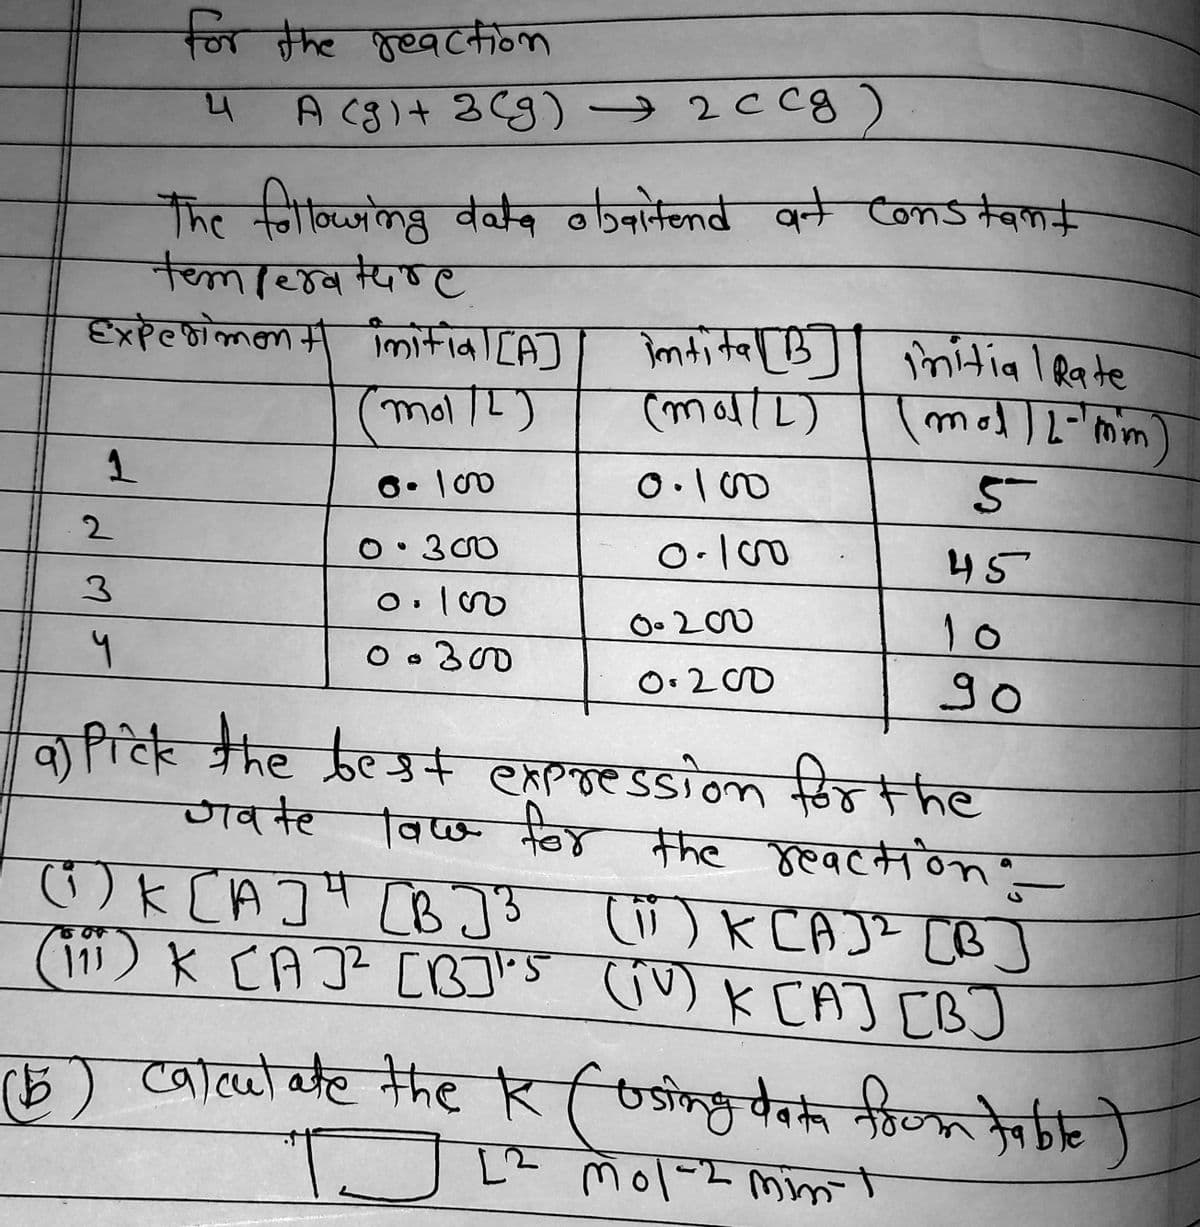 for the reaction
4 A (g) + 3(g) → 2C (g)
The following data obaitend at constant
temperature
Experiment initial [A] intital [B] initial Rate
(mol/L) (mol/L) (mol/L-1 min)
1 0.100 0.100 5
2 0.300 0.100 45
3 0.100 0.200 10
4 0.300 0.200 90
a) Pick the best expression for the
rate law for the reaction:-
(i) K [A]4 [B]3 (ii) K [A]2 [B]
(iii) K [A]2 [B]1.5 (iv) K [A] [B]
(b) Calculate the K (using data from table)
L2 mol-2 min-1